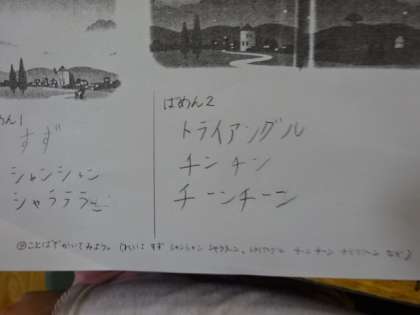 めん1
すず
シャンシャン
シャララララ
ばめん2
トライアングル
チンチン
チーンチーン
②ことばでかいてみよう。(れい：すず シャンシャン シャララーン、トライアングル チーンチーン など)